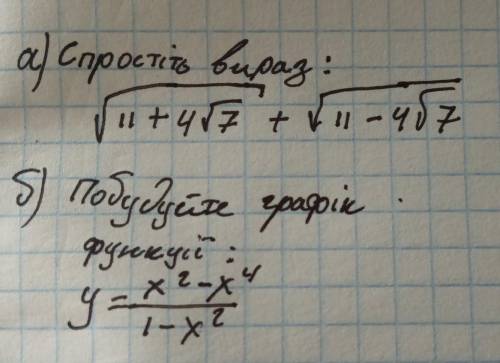 а) Спростіть вираз:
√(11 + 4√7) + √(11 - 4√7)
б) Побудуйте графік
функції:
y = (x² - x⁴)/(1 - x²)